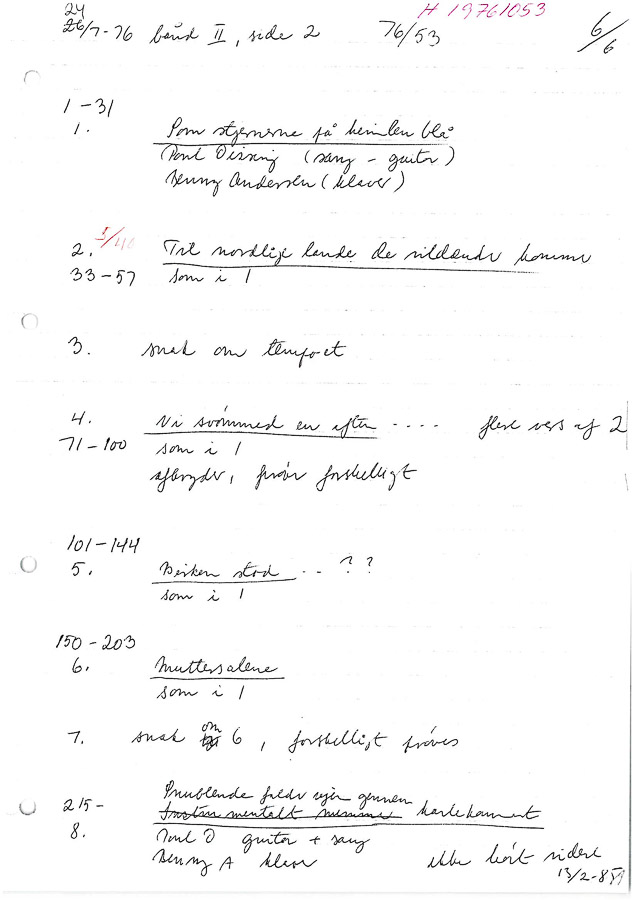 24
26/7-76 bånd II, side 2 76/53 H 19761053 6/6
1-31
1. Som stjernerne på himlen blå
Poul Dissing (sang - guitar)
Benny Andersen (klaver)
2. 5/40 Til nordlige lande de vildænder komme
33-57 som i 1
3. snak om tempoet
4. Vi svømmed en aften .... flere vers af 2
71-100 som i 1
afbryder, prøver forskelligt
101-144
5. Birken stod .. ??
som i 1
150-203
6. Muttersalene
som i 1
7. snak om 6, forskelligt prøves
Snublende fredv gennem
215- Instrumentalt nummer karlekammeret
8. Poul D guitar + sang
Benny A klaver ikke hørt videre
13/2-85